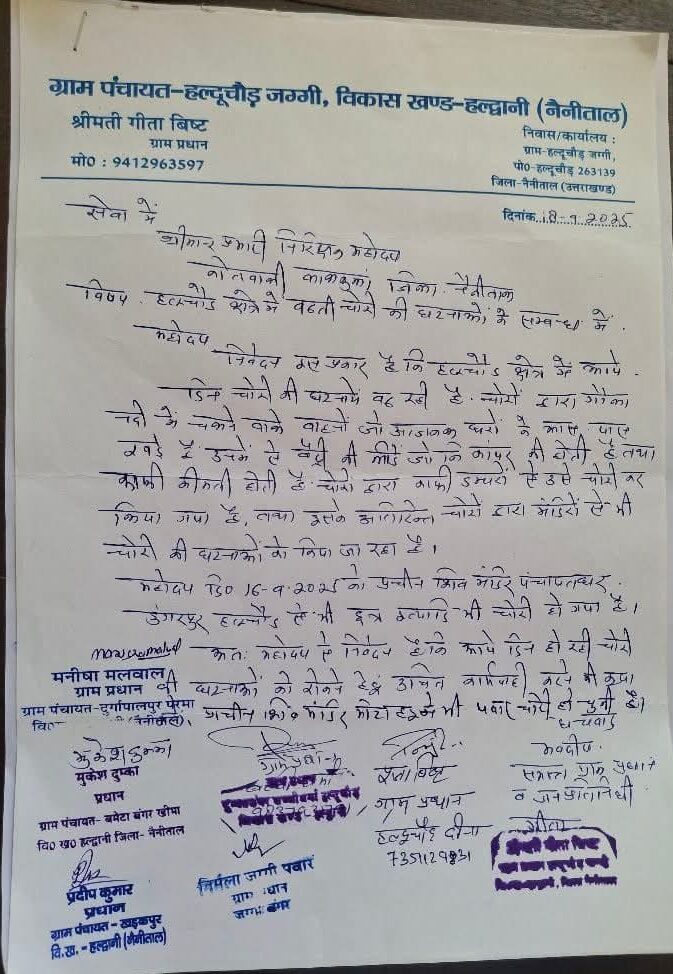 ग्राम पंचायत-हल्दूचौड़ जग्गी, विकास खण्ड-हल्द्वानी (नैनीताल)
श्रीमती गीता बिष्ट
ग्राम प्रधान
मो0 : 9412963597
निवास/कार्यालय :
ग्राम-हल्दूचौड़ जग्गी,
पो0-हल्दूचौड़ 263139
जिला-नैनीताल (उत्तराखण्ड)
दिनांक 18-9-2025
सेवा में
श्रीमान प्रभारी निरिक्षक महोदय
कोतवाली लालकुआं, जिला- नैनीताल
विषय- हल्दूचौड़ क्षेत्र में बढती चोरी की घटनाओं के सम्बन्ध में.
महोदय
निवेदन इस प्रकार है कि हल्दूचौड़ क्षेत्र में आये
दिन चोरी की घटनायें बढ़ रही है. चोरों द्वारा गौला
नदी में चलने वाले वाहनों जो आजकल घरों के आस पास
खड़े हैं उनमें से बैट्री की लीडें जो कि कापर की होती है तथा
काफी कीमती होती है. चोरों द्वारा काफी डम्परों से उसे चोरी कर
लिया गया है, तथा इसके अतिरिक्त चोरों द्वारा मंदिरों से भी
चोरी की घटनाओं को किया जा रहा है।
महोदय दि0 16-9-2025 को प्राचीन शिव मंदिर पंचायतघर.
डुंगरपुर हल्दूचौड़ से भी छत्र इत्यादि भी चोरी हो गया है।
अतः महोदय से निवेदन है कि आये दिन हो रही चोरी
की घटनाओं को रोकने हेतु उचित कार्यवाही करने की कृपा
प्राचीन शिव मंदिर मोटाहल्दू में भी चोरी हो चुकी है।
धन्यवाद
मनीषा मलवाल
ग्राम प्रधान
ग्राम पंचायत-दुर्गापालपुर परमा
मुकेश दुम्का
मुकेश दुम्का
प्रधान
ग्राम पंचायत- बमेटा बंगर खीमा
वि0 ख0 हल्द्वानी जिला- नैनीताल
ग्राम प्रधान
ग्राम प्रधान
हल्दूचौड़ दीना
7351129831
समस्त ग्राम प्रधान
व जनप्रतिनिधी
गीता
श्रीमती गीता बिष्ट
प्रदीप कुमार
प्रधान
ग्राम पंचायत - खड़कपुर
वि.ख. - हल्द्वानी (नैनीताल)
निर्मला जग्गी पवार
ग्राम प्रधान
जग्गी बंगर